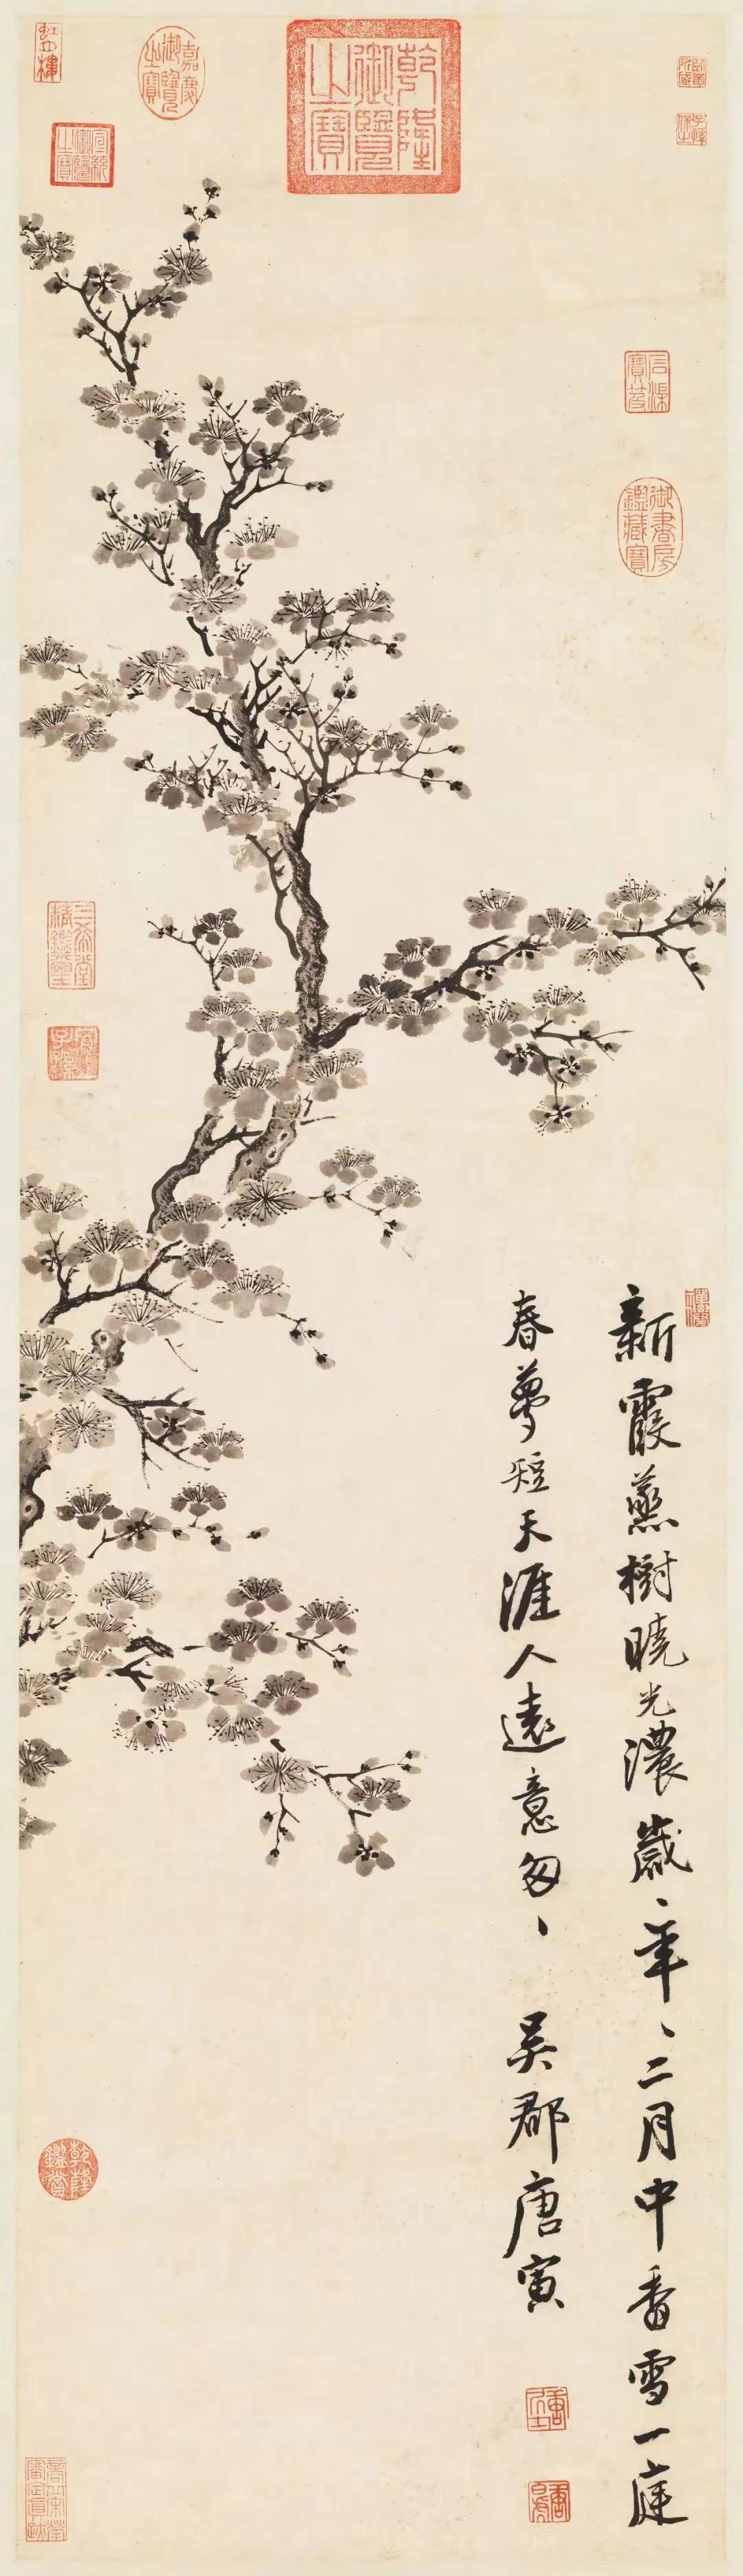 石渠寶笈
御書房鑑藏寶
新霞蒸樹曉光濃歲、年、二月中香雪一庭
春夢短天涯人遠意匆、 吳郡唐寅
唐居士
乾隆御覽之寶
嘉慶御覽之寶
宣統御覽之寶
三希堂精鑑璽
宜子孫
乾隆鑑賞